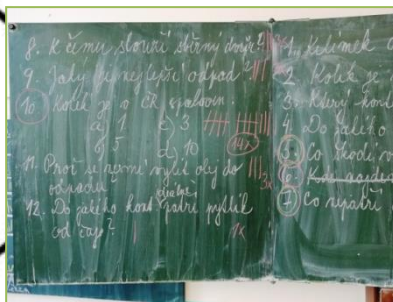 8. K čemu slouží sběrný dvůr?
9. Jaký je nejlepší odpad?
10. Kolik je v ČR spaloven.
a) 1 c) 3
b) 5 d) 10 14x
11. Proč se nesmí vylít olej do
odpadu 3x
12. Do jakého kont. patří pytlík
od čaje? 1x
1. Kelímek
2. Kolik je
3. Který kont
4. Do jakého
5. Co škodí
6.
7. Co nepatří